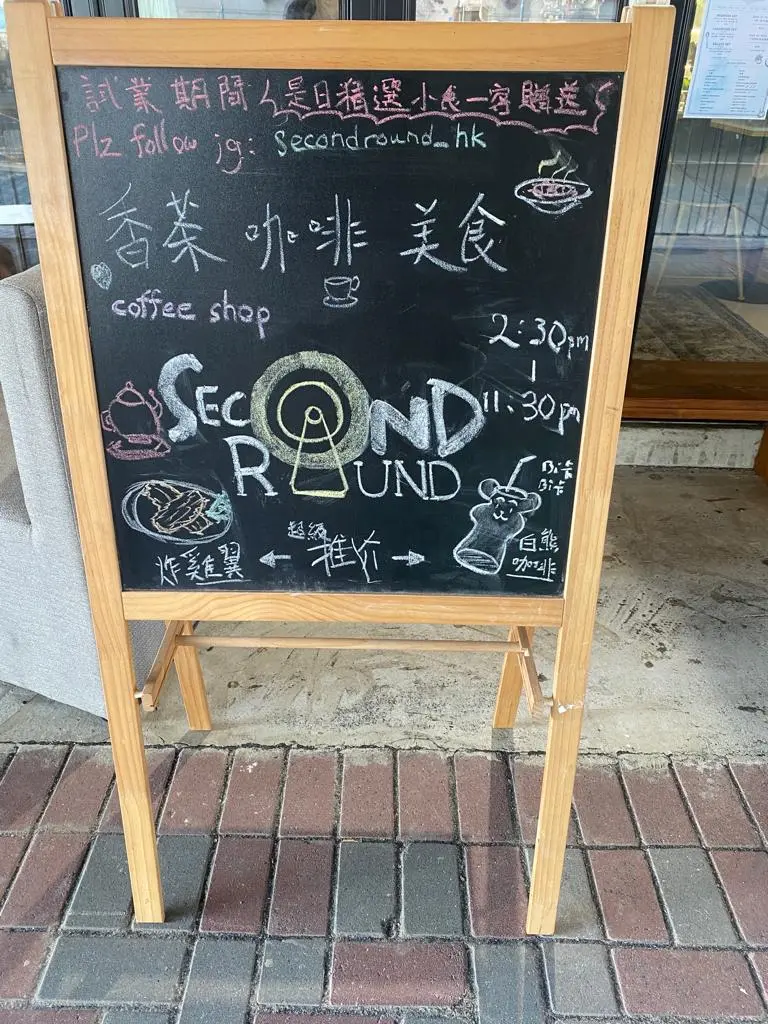 試業期間 是日精選小食一客贈送
Plz follow ig: secondround_hk
香茶 咖啡 美食
coffee shop
2:30pm
|
11:30pm
SECOND
ROUND
Bi卡
Bi卡
超級
炸雞翼 ← 推介 → 白熊
咖啡